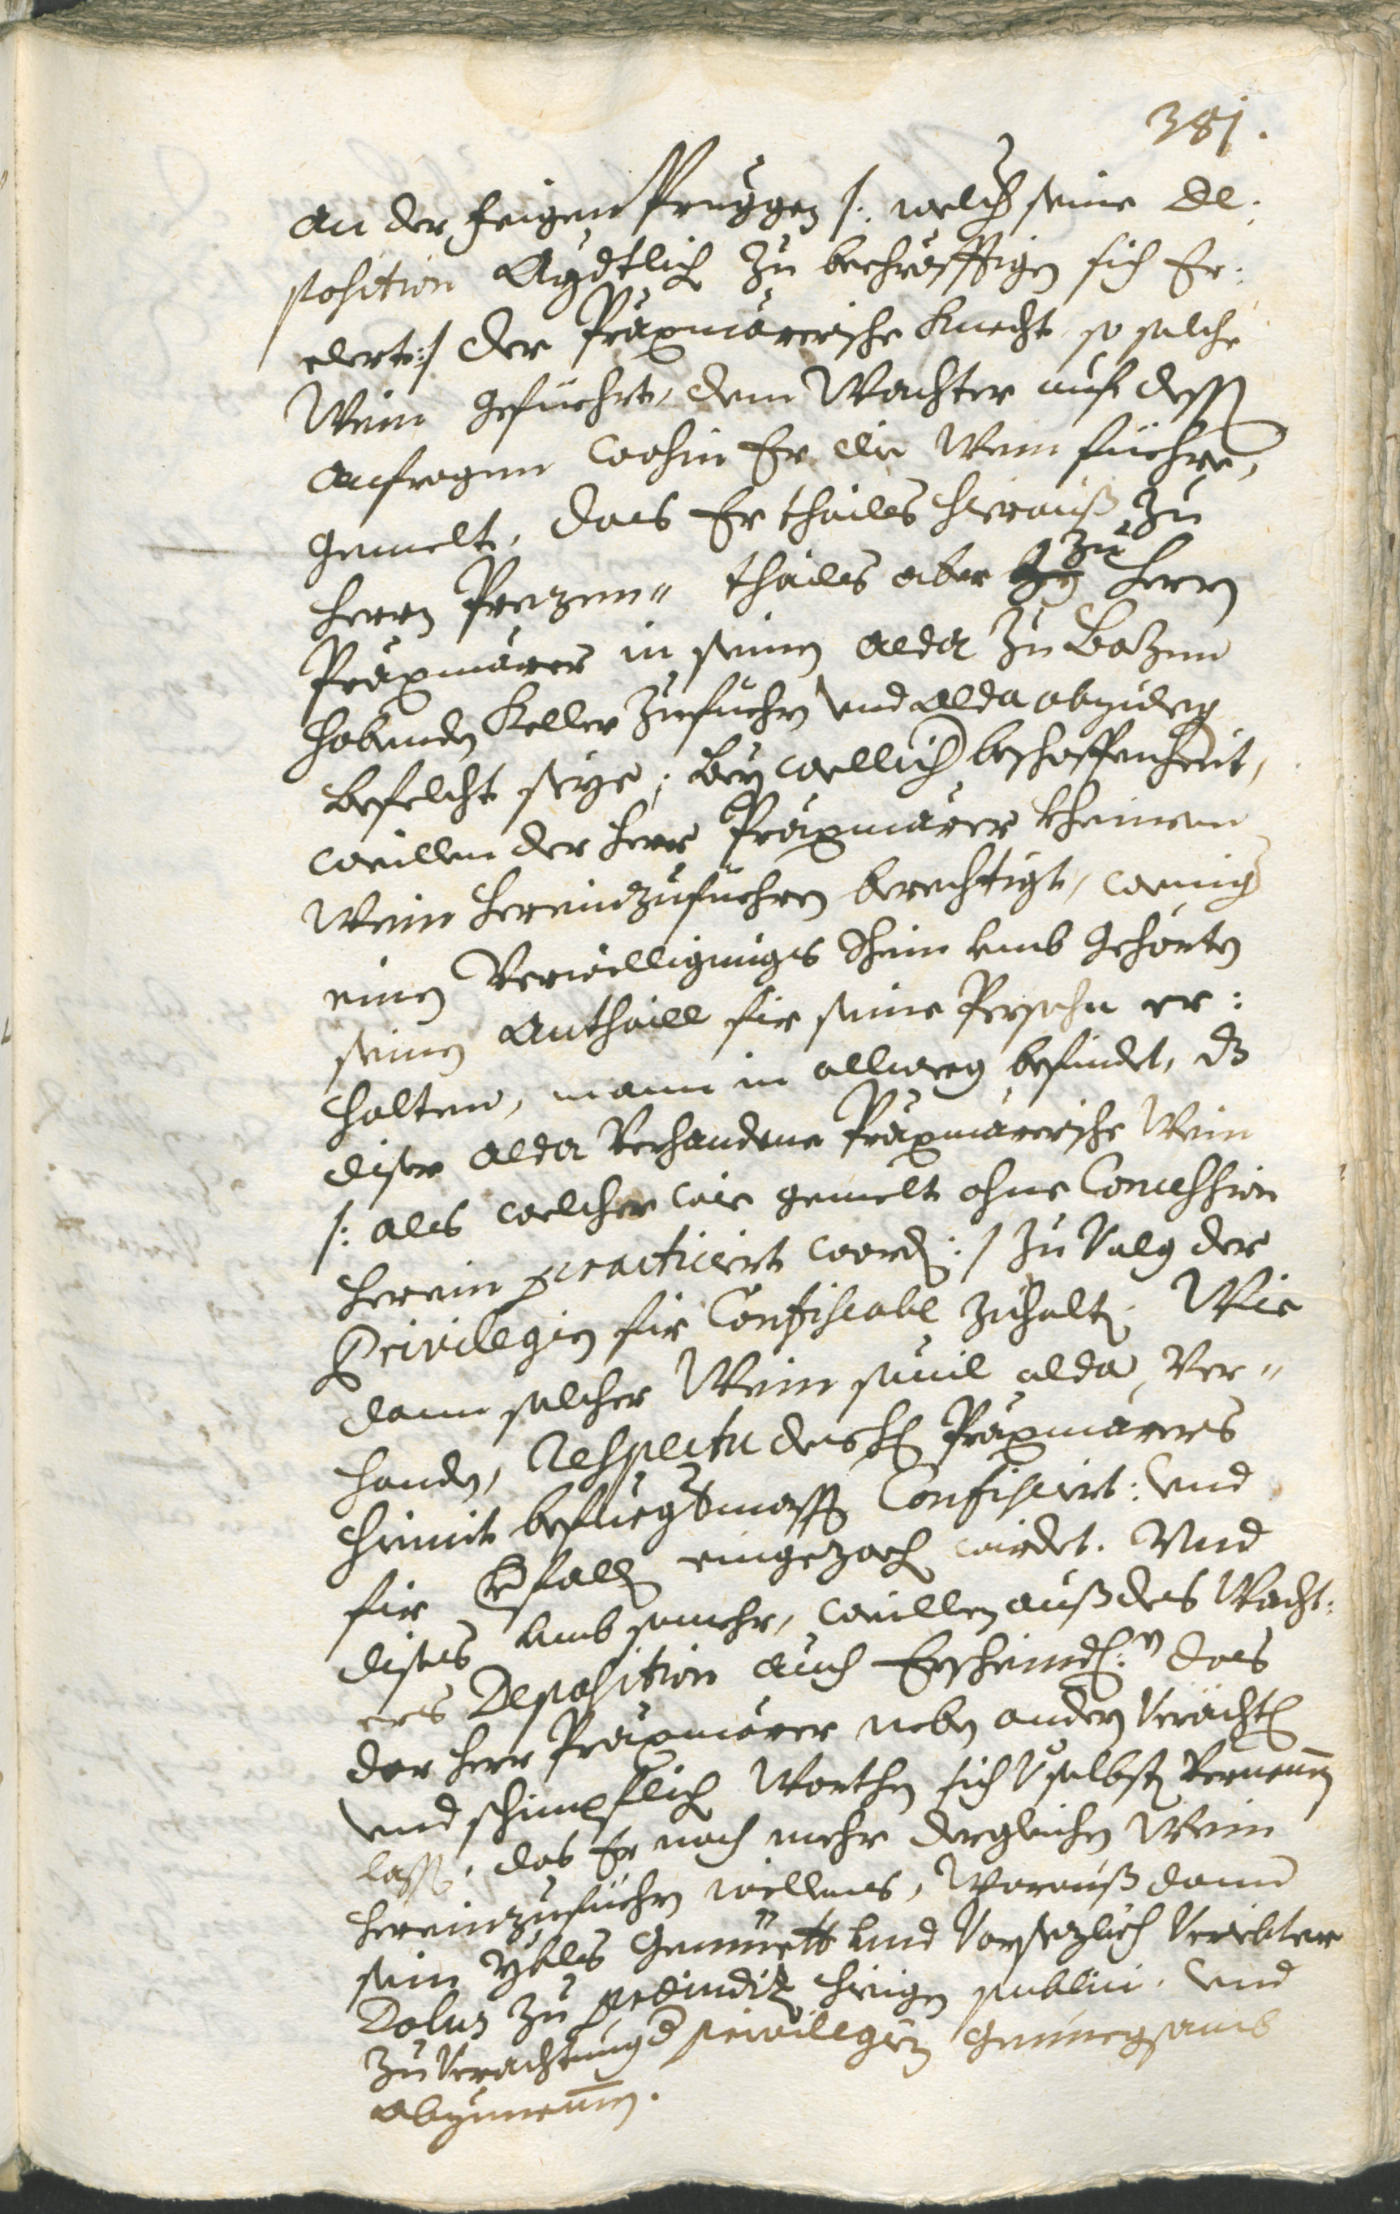 381.
an der feigen Pruggen /: welch seine De:
position Aydtlich zu becräfftigen sich Er:
clert :/ der Präxmärerische Knecht so solche
Wein gefüehrt, dem Wachter auf dessen
anfragen wohin Er die Wein füehre,
gemelt, das Er thailes hieraus zu
Herrn Prezen" thailes aber zu Herrn
Präxmärers in seinen alda zu Bozen
habenden Keller zufüehrn und alda abzulegen
befelcht seye; bey wellich beschaffenheit,
weillen der Herr Präxmärer kheinen
Wein hereinzufüehren berechtigt, wenig
einen Verwilligungs Schein umb gehörten
seinen Anthaill für seine Persohn er:
halten, mann in allweeg befindet, dz
diser alda Verhandene Präxmärerische Wein
/: als welcher wie gemelt ohne Concession
herein practiciert worden :/ zu Volg der
Privilegien für Confiscabl zuhalten. Wie
dann solcher Wein sovil alda Ver"
handen, Respectu des H. Präxmärers
hiemit befuegtermassen Confisciert: und
für verfallen eingezochen wirdet. Und
dises umb somehr, weillen auß des Wacht:
ers Deposition auch Erscheinet das
der Herr Präxmärer neben andern Verächt.
und schimpflich Worthen sich selbst Vernemen
lassen, das Er noch mehr dergleichen Wein
hereinzufüehrn willens, Woraus dann
sein ybles Gemüett und Vorsezlich Veriebter
Dolus zu prejudiz hiesigen publici, und
zu Verachtung der privilegien genuegsamb
abzunemen.